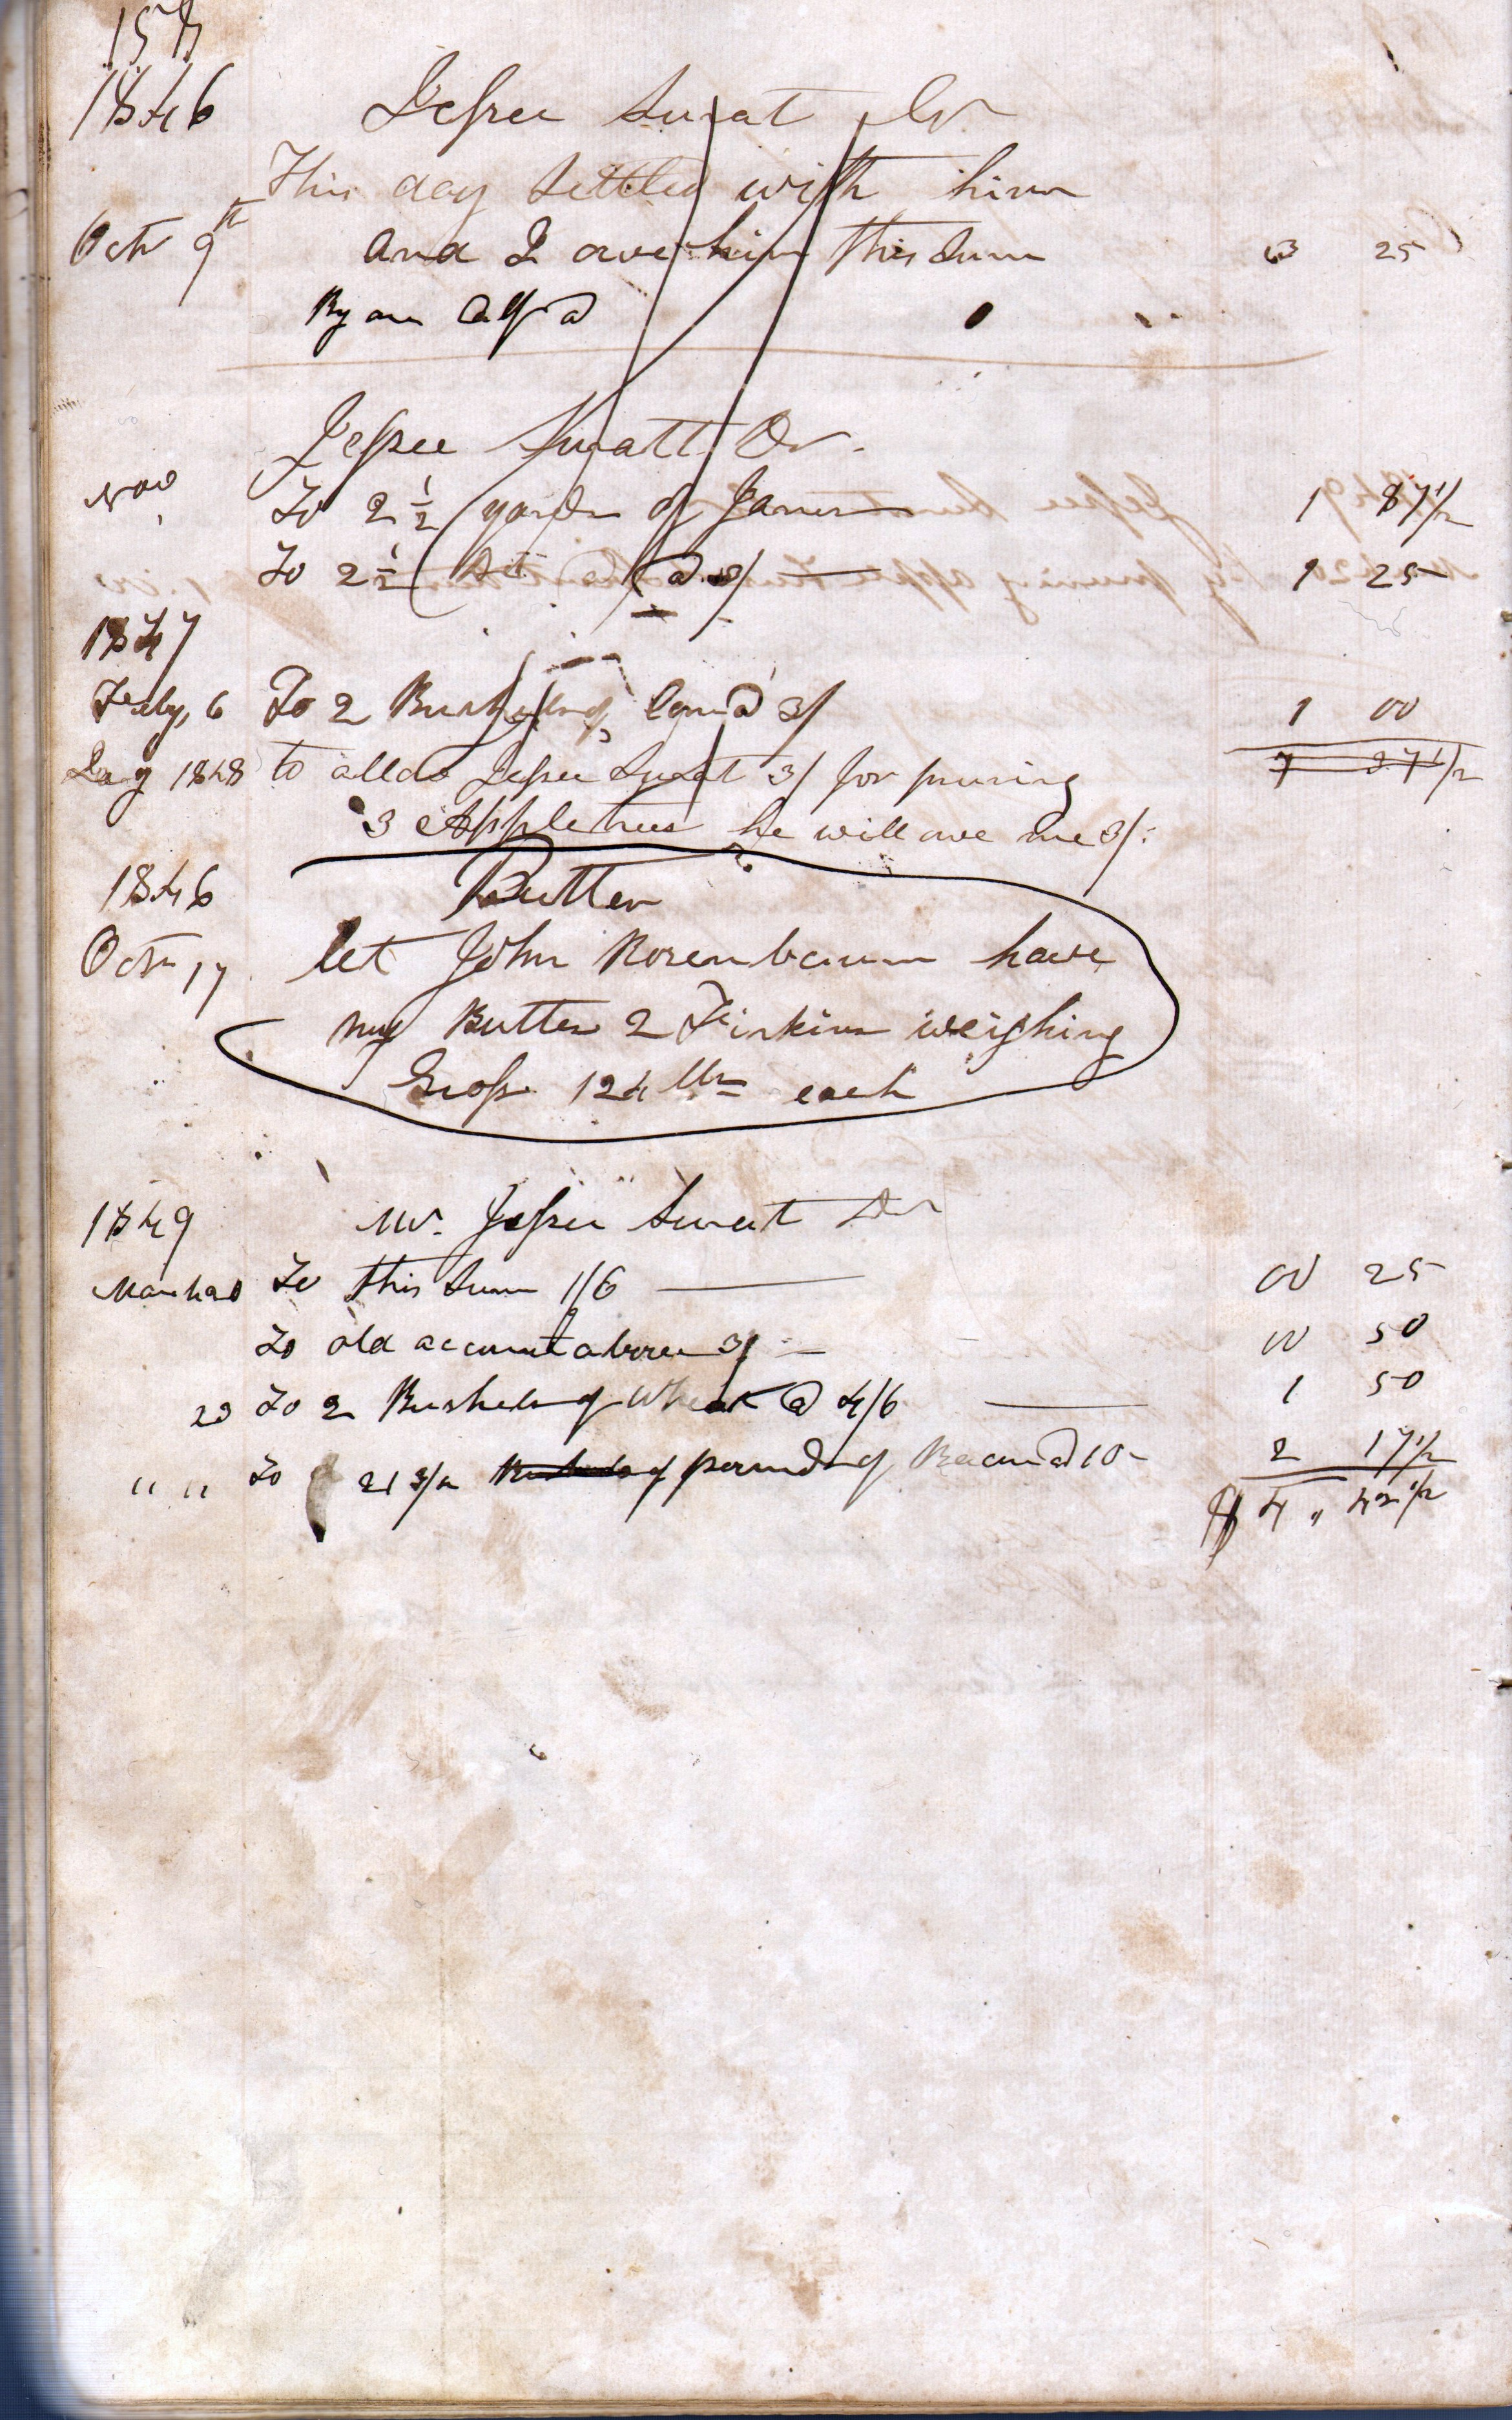 154
1846 Jessee Swat Cr
This day Settled with him
Octr 9th and I owe him this Sum 3 25
By an
Jessee Swatt Dr.
Nov To 2 1/2 yards of Janes 1 87 1/2
To 2 1/2 Do @ 1 25
1847
Feby, 6 To 2 Bushels of Corn @ 3/ 1 00
1848 to allow Jessee Swat 3/ for pruning
3 Apple trees he will owe me 3/.
1846 Butter
Octr 17 let John Rosenbaum have
my Butter 2 Firkins weighing
Gross 124 lbs each
1849 Mr. Jessee Swat Dr
March 20 To this Sum 1/6 00 25
To old account above 3/ 00 50
23 To 2 Bushels of Wheat @ 4/6 1 50
" " To 21 3/4 Bushels of pounds of Bacon @ 10 2 17 1/2
$ 4 " 42 1/2